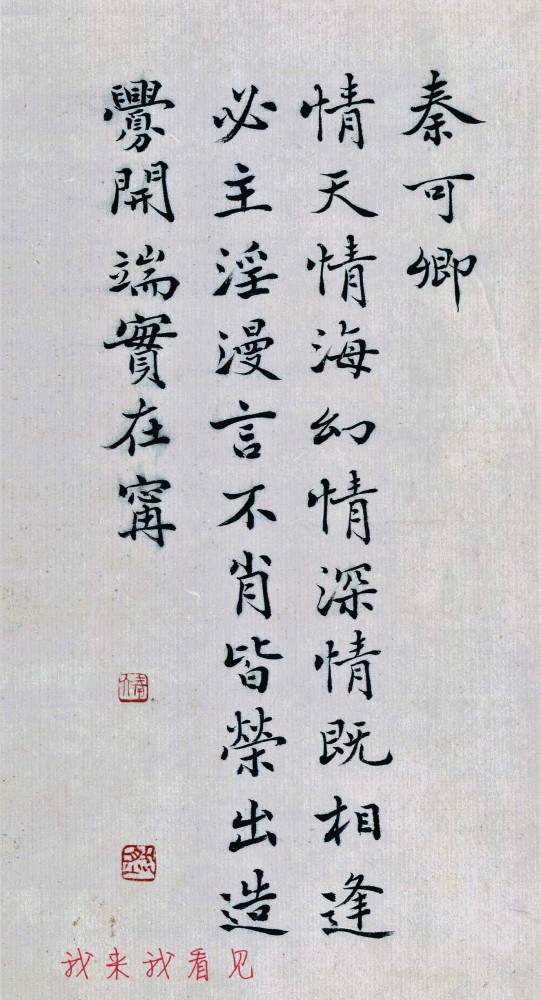 秦可卿
情天情海幻情深情既相逢
必主淫漫言不肖皆榮出造
釁開端實在甯
我来我看见